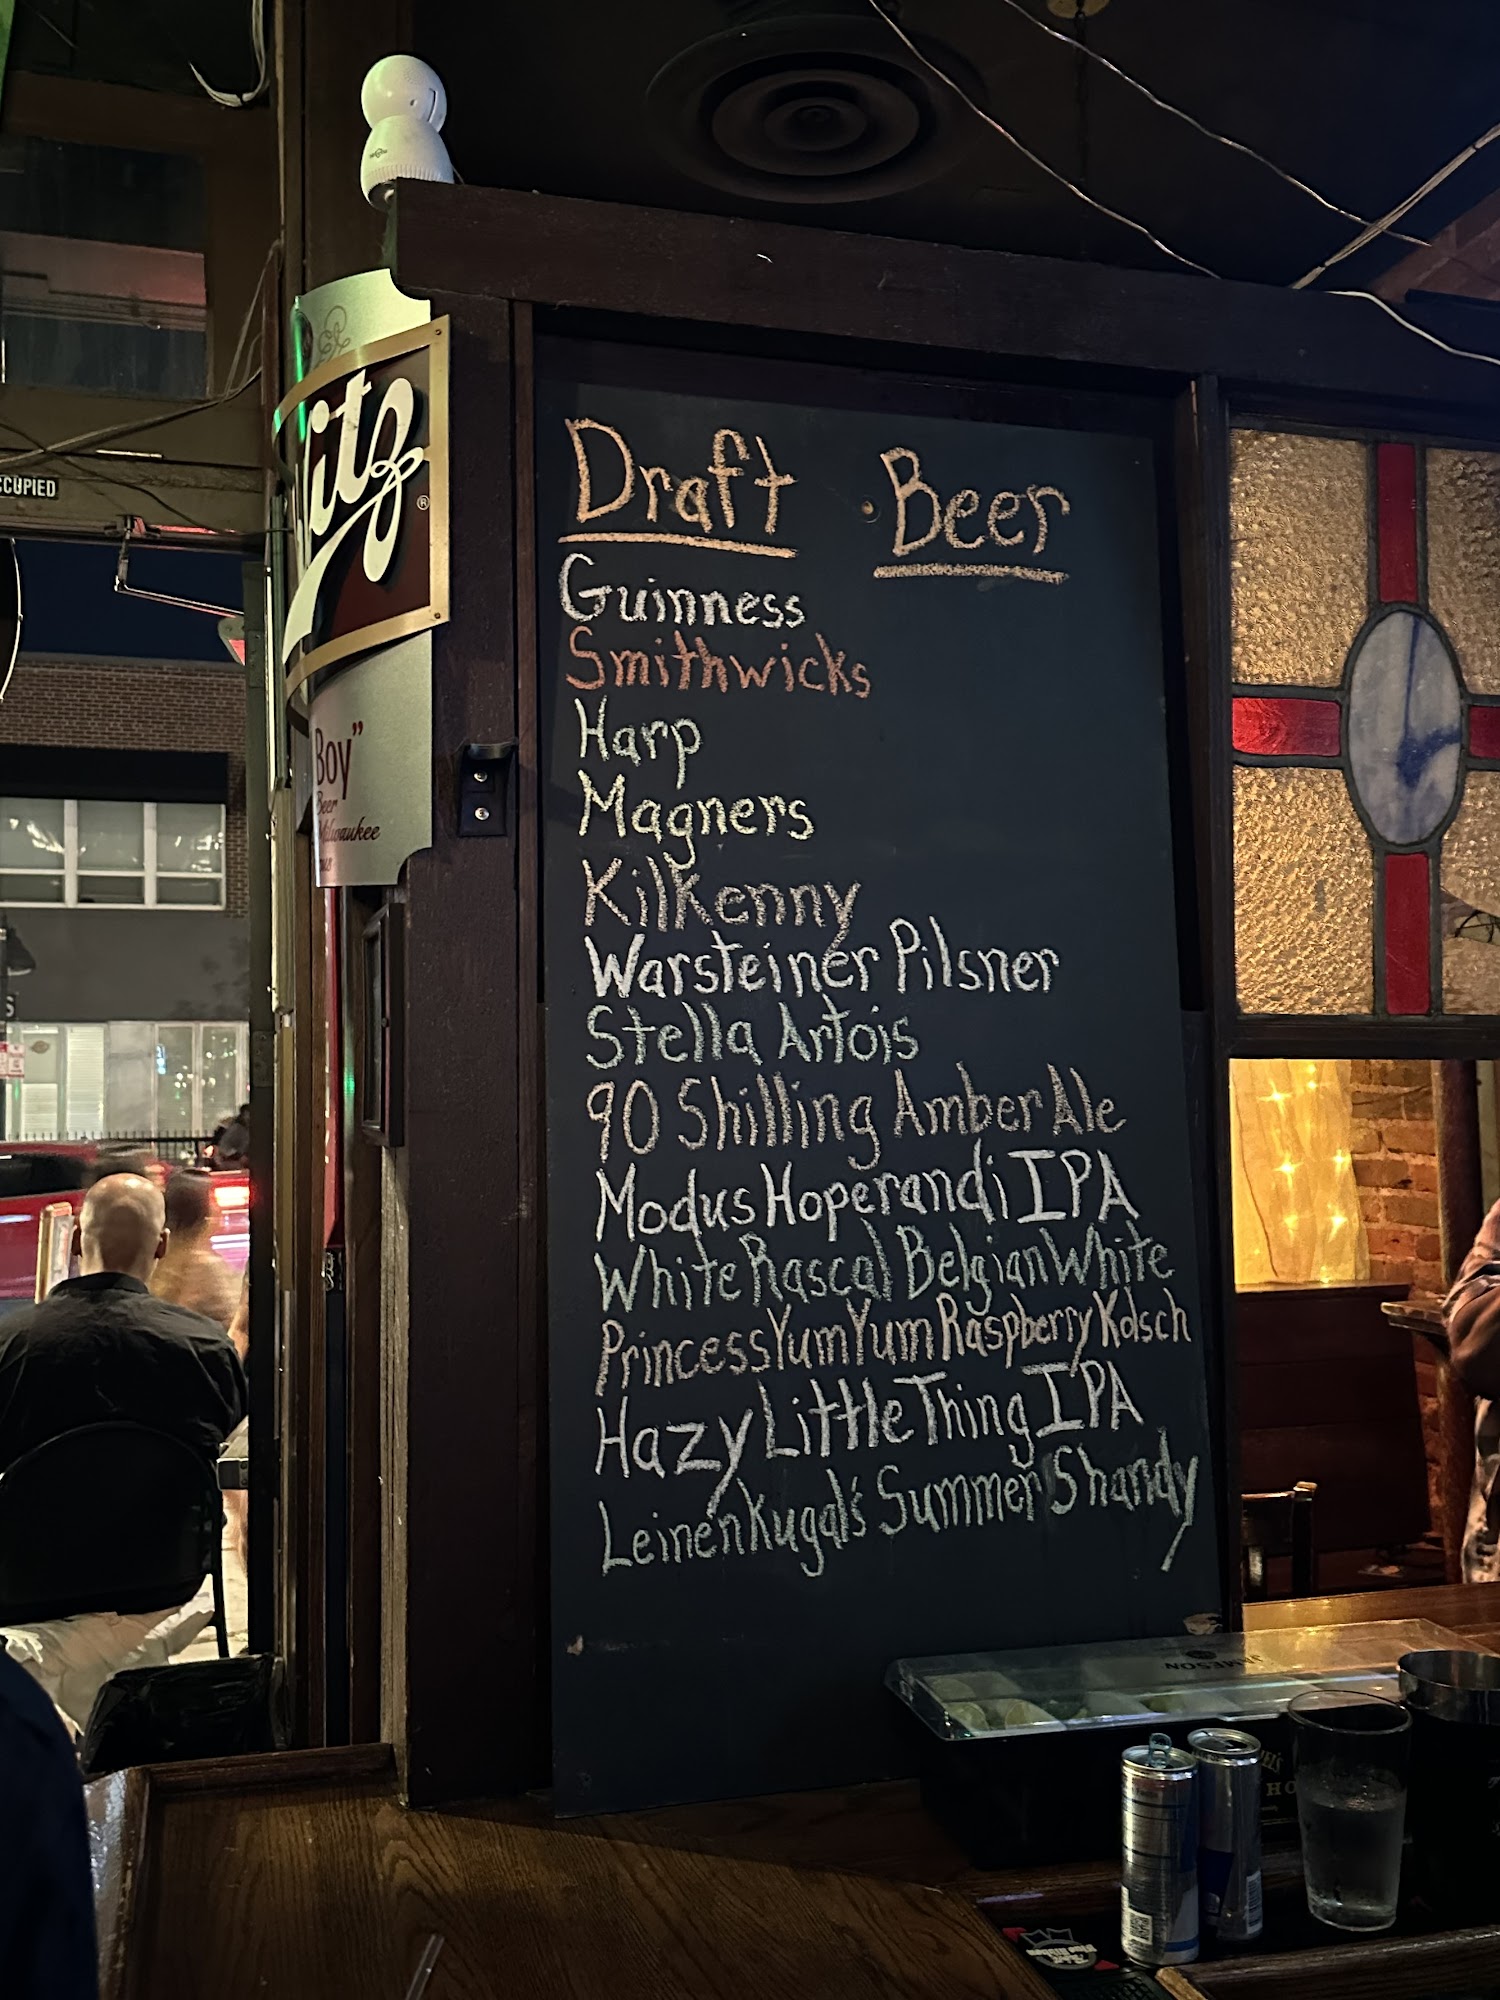 Draft Beer
Guinness
Smithwicks
Harp
Magners
Kilkenny
Warsteiner Pilsner
Stella Artois
90 Shilling Amber Ale
Modus Hoperandi IPA
White Rascal Belgian White
Princess Yum Yum Raspberry Kolsch
Hazy Little Thing IPA
Leinenkugal's Summer Shandy
litz®
Boy"
Beer
Milwaukee
CCUPIED
JAMESON